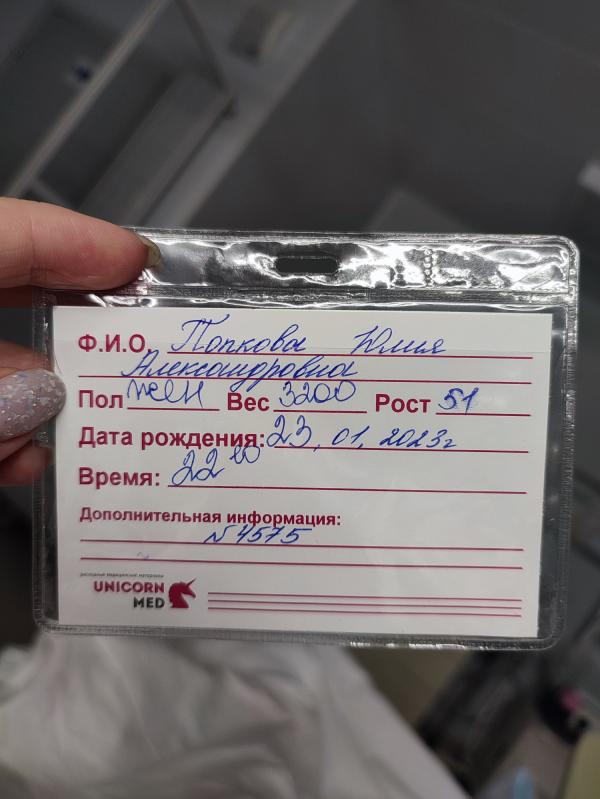 Ф.И.О. Попкова Юлия
Александровна
Пол жен Вес 3200 Рост 51
Дата рождения: 23.01.2023г
Время: 22 10
Дополнительная информация:
№ 4575
расходные медицинские материалы
UNICORN
MED